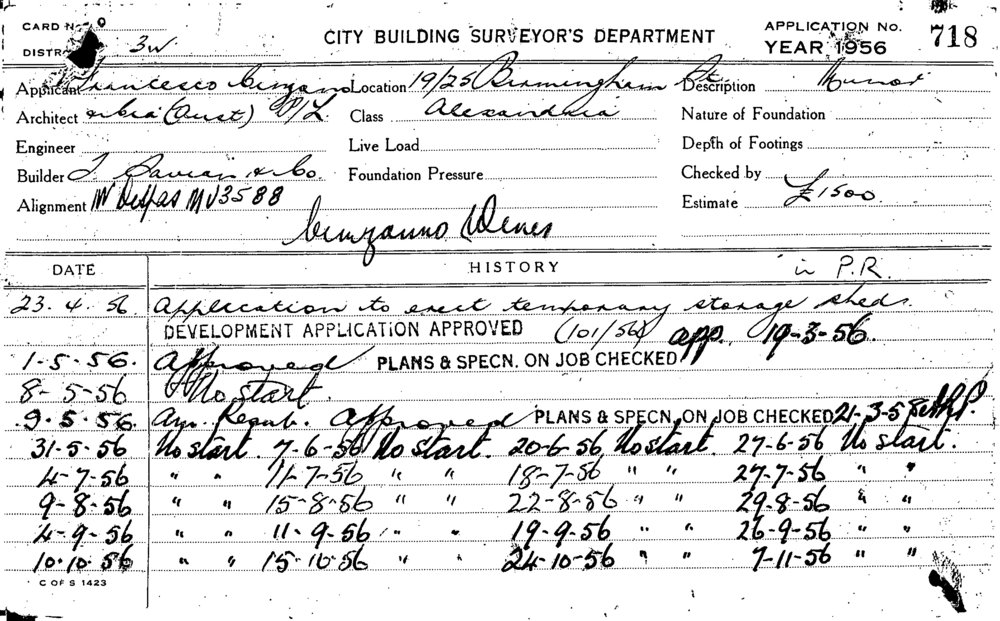 CARD No.
CITY BUILDING SURVEYOR'S DEPARTMENT
APPLICATION No. 718
DISTR 3W.
YEAR 1956
Applicant Francesco Cinzano Location 19/25 Birmingham St. Description
Architect (Aust) P/L. Class Alexandria Nature of Foundation
Engineer Live Load Depth of Footings
Builder & Co. Foundation Pressure Checked by
Alignment MU3588 Estimate £1500
Cinzanno Wines
DATE HISTORY in P.R.
23.4.56 Application to erect temporary storage sheds.
DEVELOPMENT APPLICATION APPROVED (101/56) app. 19-3-56.
1-5-56. Approved PLANS & SPECN. ON JOB CHECKED
8-5-56 No start.
9.5.56. Approved PLANS & SPECN. ON JOB CHECKED 21-3-58
31-5-56 No start. 7-6-56 No start. 20-6-56 No start. 27-6-56 No start.
4-7-56 " " 11-7-56 " " 18-7-56 " " 27-7-56 " "
9-8-56 " " 15-8-56 " " 22-8-56 " " 29-8-56 " "
4-9-56 " " 11-9-56 " " 19-9-56 " " 26-9-56 " "
10.10.56 " " 15-10-56 " " 24-10-56 " " 7-11-56 " "
C OF S 1423